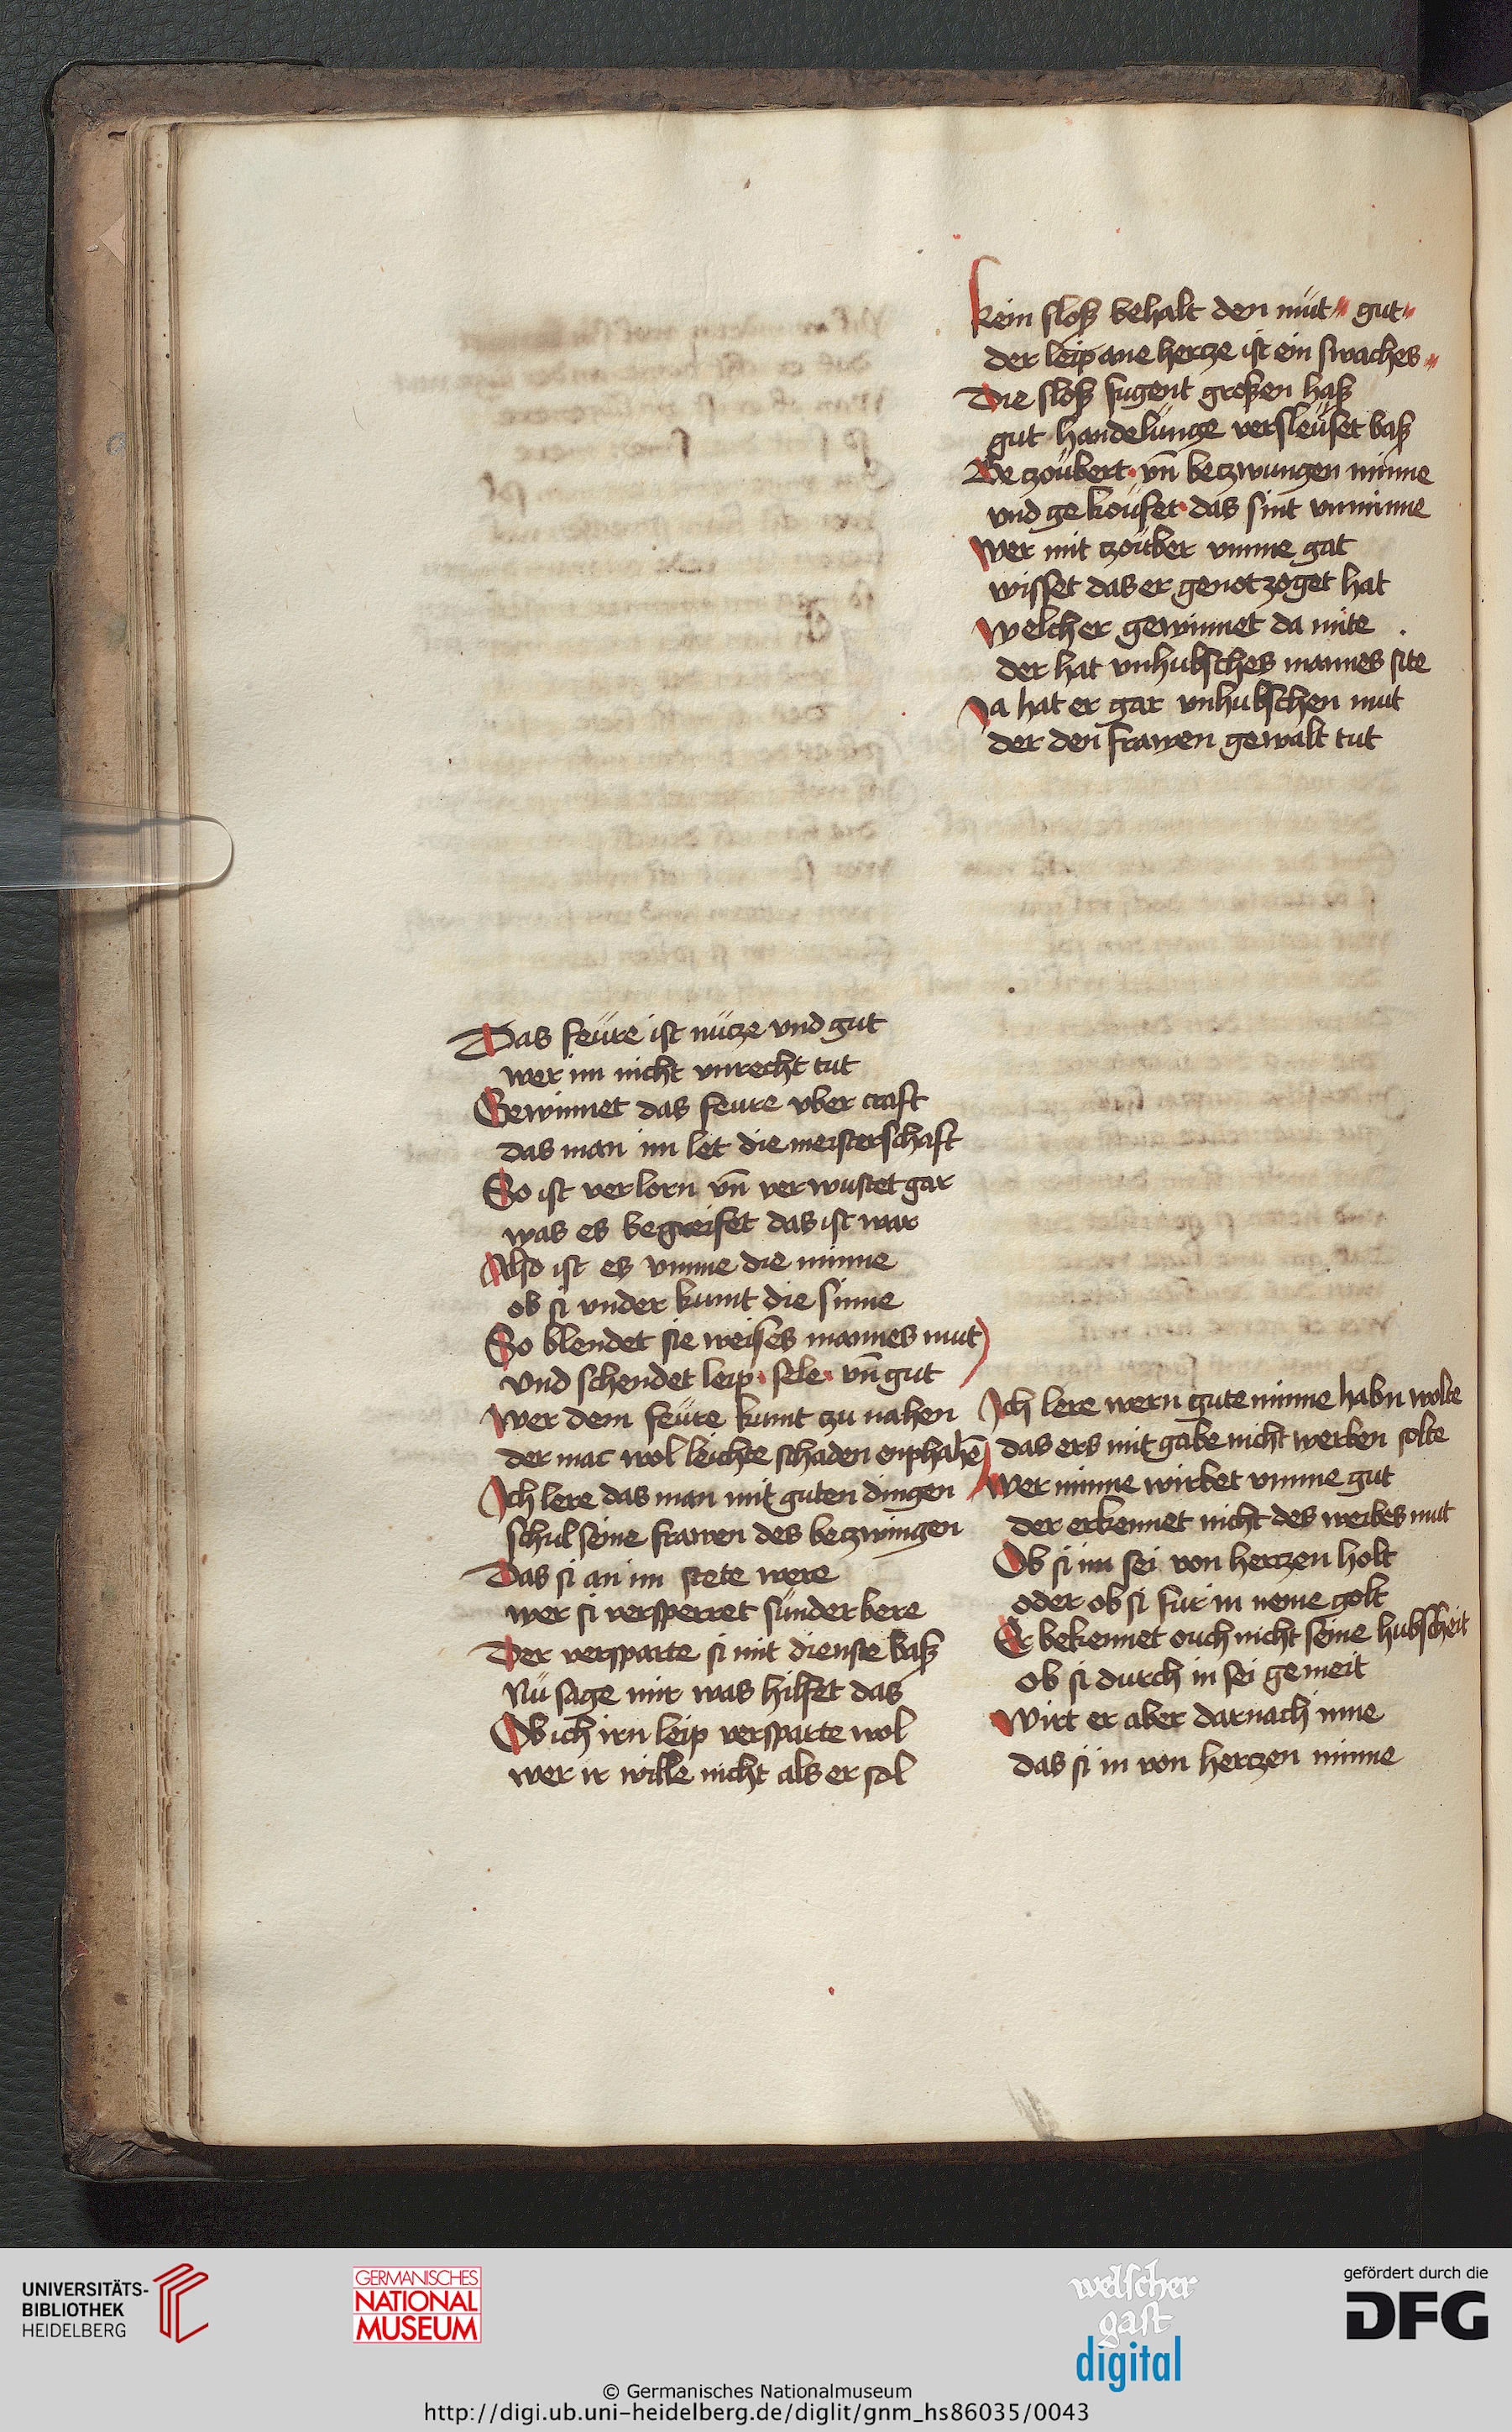 Das feüre ist nücze vnd gut
wer im nicht vnrecht tut
Gewinnet das feure vber craft
das man im let die meisterschaft
So ist verlorn vn̄ verwustet gar
was es begreifet das ist war
Also ist es vmme die minne
ob si vnder kumt die sinne
So blendet sie weises mannes mut
vnd schendet leip · sele · vn̄ gut
Wer dem feüre kumt zu nahen
der mac wol leichte schaden enphahē
Ich lere das man mit guten dingen
schul seine frawen des beczwingen
Das si an im stete were
wer si versperret sunder bere
Der versparte si mit dienste baß
Nü sage mir was hilfet das
Ob ich irn leip versparte wol
wer ir wille nicht als er sol
Kein sloß behalt den müt gut
der leip ane hercze ist ein swaches
Die sloß fugent großen haß
gut handelunge versleüset baß
Beczoübert · vn̄ beczwungen minne
vnd gekoüfet · das sint vnminne
Wer mit czoüber vmme gat
wisset das er genotzoget hat
Welcher gewinnet da mite
der hat vnhubsches mannes site
Ja hat er gar vnhubschen mut
der den frawen gewalt tut
Ich lere wern gute minne habn wolte
das ers mit gabe nicht werben solte
Wer minne wirbet vmme gut
der erkennet nicht des weibes mut
Ob si im sei von herczen holt
oder ob si fur in neme golt
Er bekennet ouch nicht seine hubscheit
ob si durch in sei gemeit
Wirt er aber darnach inne
das si in von herczen minne
UNIVERSITÄTS-
BIBLIOTHEK
HEIDELBERG
GERMANISCHES
NATIONAL
MUSEUM
welscher
gast
digital
gefördert durch die
DFG
© Germanisches Nationalmuseum
http://digi.ub.uni-heidelberg.de/diglit/gnm_hs86035/0043